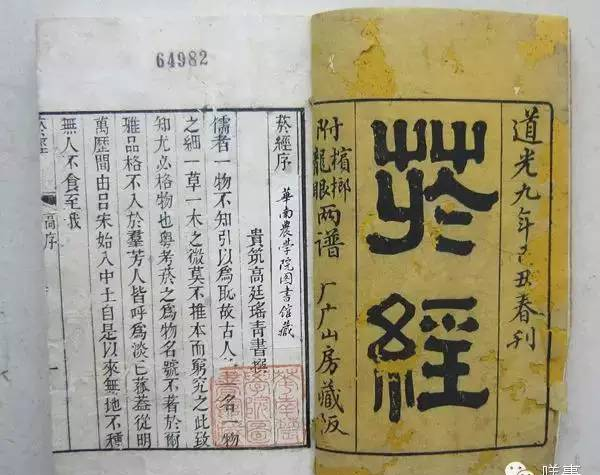 道光九年己丑春刊
菸經
附檳榔龍眼兩譜
厂广山房藏版
64982
菸經序
華南農学院図書館藏
貴筑高廷瑤青書撰
儒者一物不知引以爲恥故古人名一物
之細一草一木之微莫不推本而窮究之此致
知尤必格物也粵考菸之爲物名號不著於爾
雅品格不入於羣芳人皆呼爲淡巴菰葢從明
萬歷間由呂宋始入中土自是以來無地不種
無人不食至我
菸經
高序
咩事